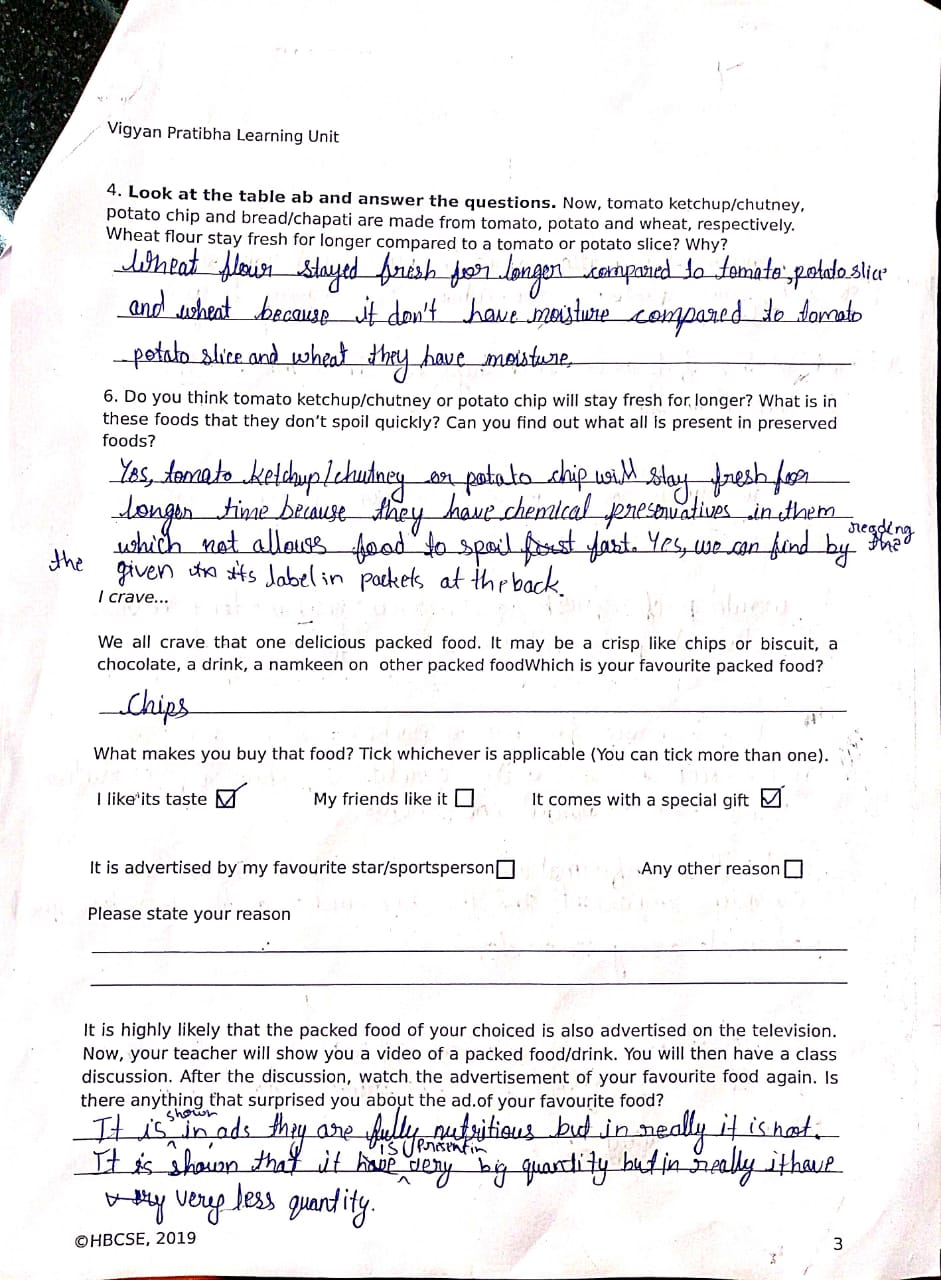 Vigyan Pratibha Learning Unit
4. Look at the table ab and answer the questions. Now, tomato ketchup/chutney,
potato chip and bread/chapati are made from tomato, potato and wheat, respectively.
Wheat flour stay fresh for longer compared to a tomato or potato slice? Why?
Wheat flour stayed fresh for longer compared to tomato, potato slice
and wheat because it don't have moisture compared to tomato
potato slice and wheat they have moisture.
6. Do you think tomato ketchup/chutney or potato chip will stay fresh for longer? What is in
these foods that they don't spoil quickly? Can you find out what all is present in preserved
foods?
Yes, tomato ketchup/chutney or potato chip will stay fresh for
longer time because they have chemical preservatives in them
which not allows food to spoil fast. Yes, we can find by reading the
the given its label in packets at the back.
I crave...
We all crave that one delicious packed food. It may be a crisp like chips or biscuit, a
chocolate, a drink, a namkeen on other packed foodWhich is your favourite packed food?
Chips
What makes you buy that food? Tick whichever is applicable (You can tick more than one).
I like its taste ☑ My friends like it ☐ It comes with a special gift ☑
It is advertised by my favourite star/sportsperson ☐ Any other reason ☐
Please state your reason
It is highly likely that the packed food of your choiced is also advertised on the television.
Now, your teacher will show you a video of a packed food/drink. You will then have a class
discussion. After the discussion, watch the advertisement of your favourite food again. Is
there anything that surprised you about the ad.of your favourite food?
It is shown in ads they are fully nutritious but in really it is not.
It is shown that it is present in very big quantity but in really it have
very less quantity.
©HBCSE, 2019
3